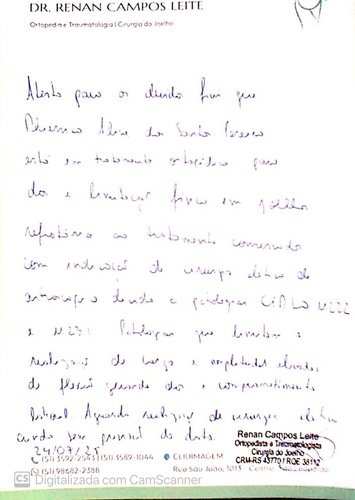 DR. RENAN CAMPOS LEITE
Ortopedia e Traumatologia | Cirurgia do Joelho
Atesto para os devidos fins que
Alves dos Santos
está em tratamento ortopédico para
dor e limitação física em joelho
refratário ao tratamento conservador
com indicação de cirurgia eletiva de
artroscopia devido a patologias CID 10 M222
e M23 Patologias que limitam a
realização de carga e amplitudes elevadas
de flexão gerando dor e comprometimento
Aguarda realização de cirurgia eletiva
ainda sem previsão de data.
24/07/25
Renan Campos Leite
Ortopedista e Traumatologista
Cirurgia do Joelho
CRM-RS 43770 / RQE 38112
(51) 3592-2543 | (51) 3589-1044 CLIOIMAGEM
(51) 98582-2386 Rua São João, 1013 - Centro
CS Digitalizada com CamScanner